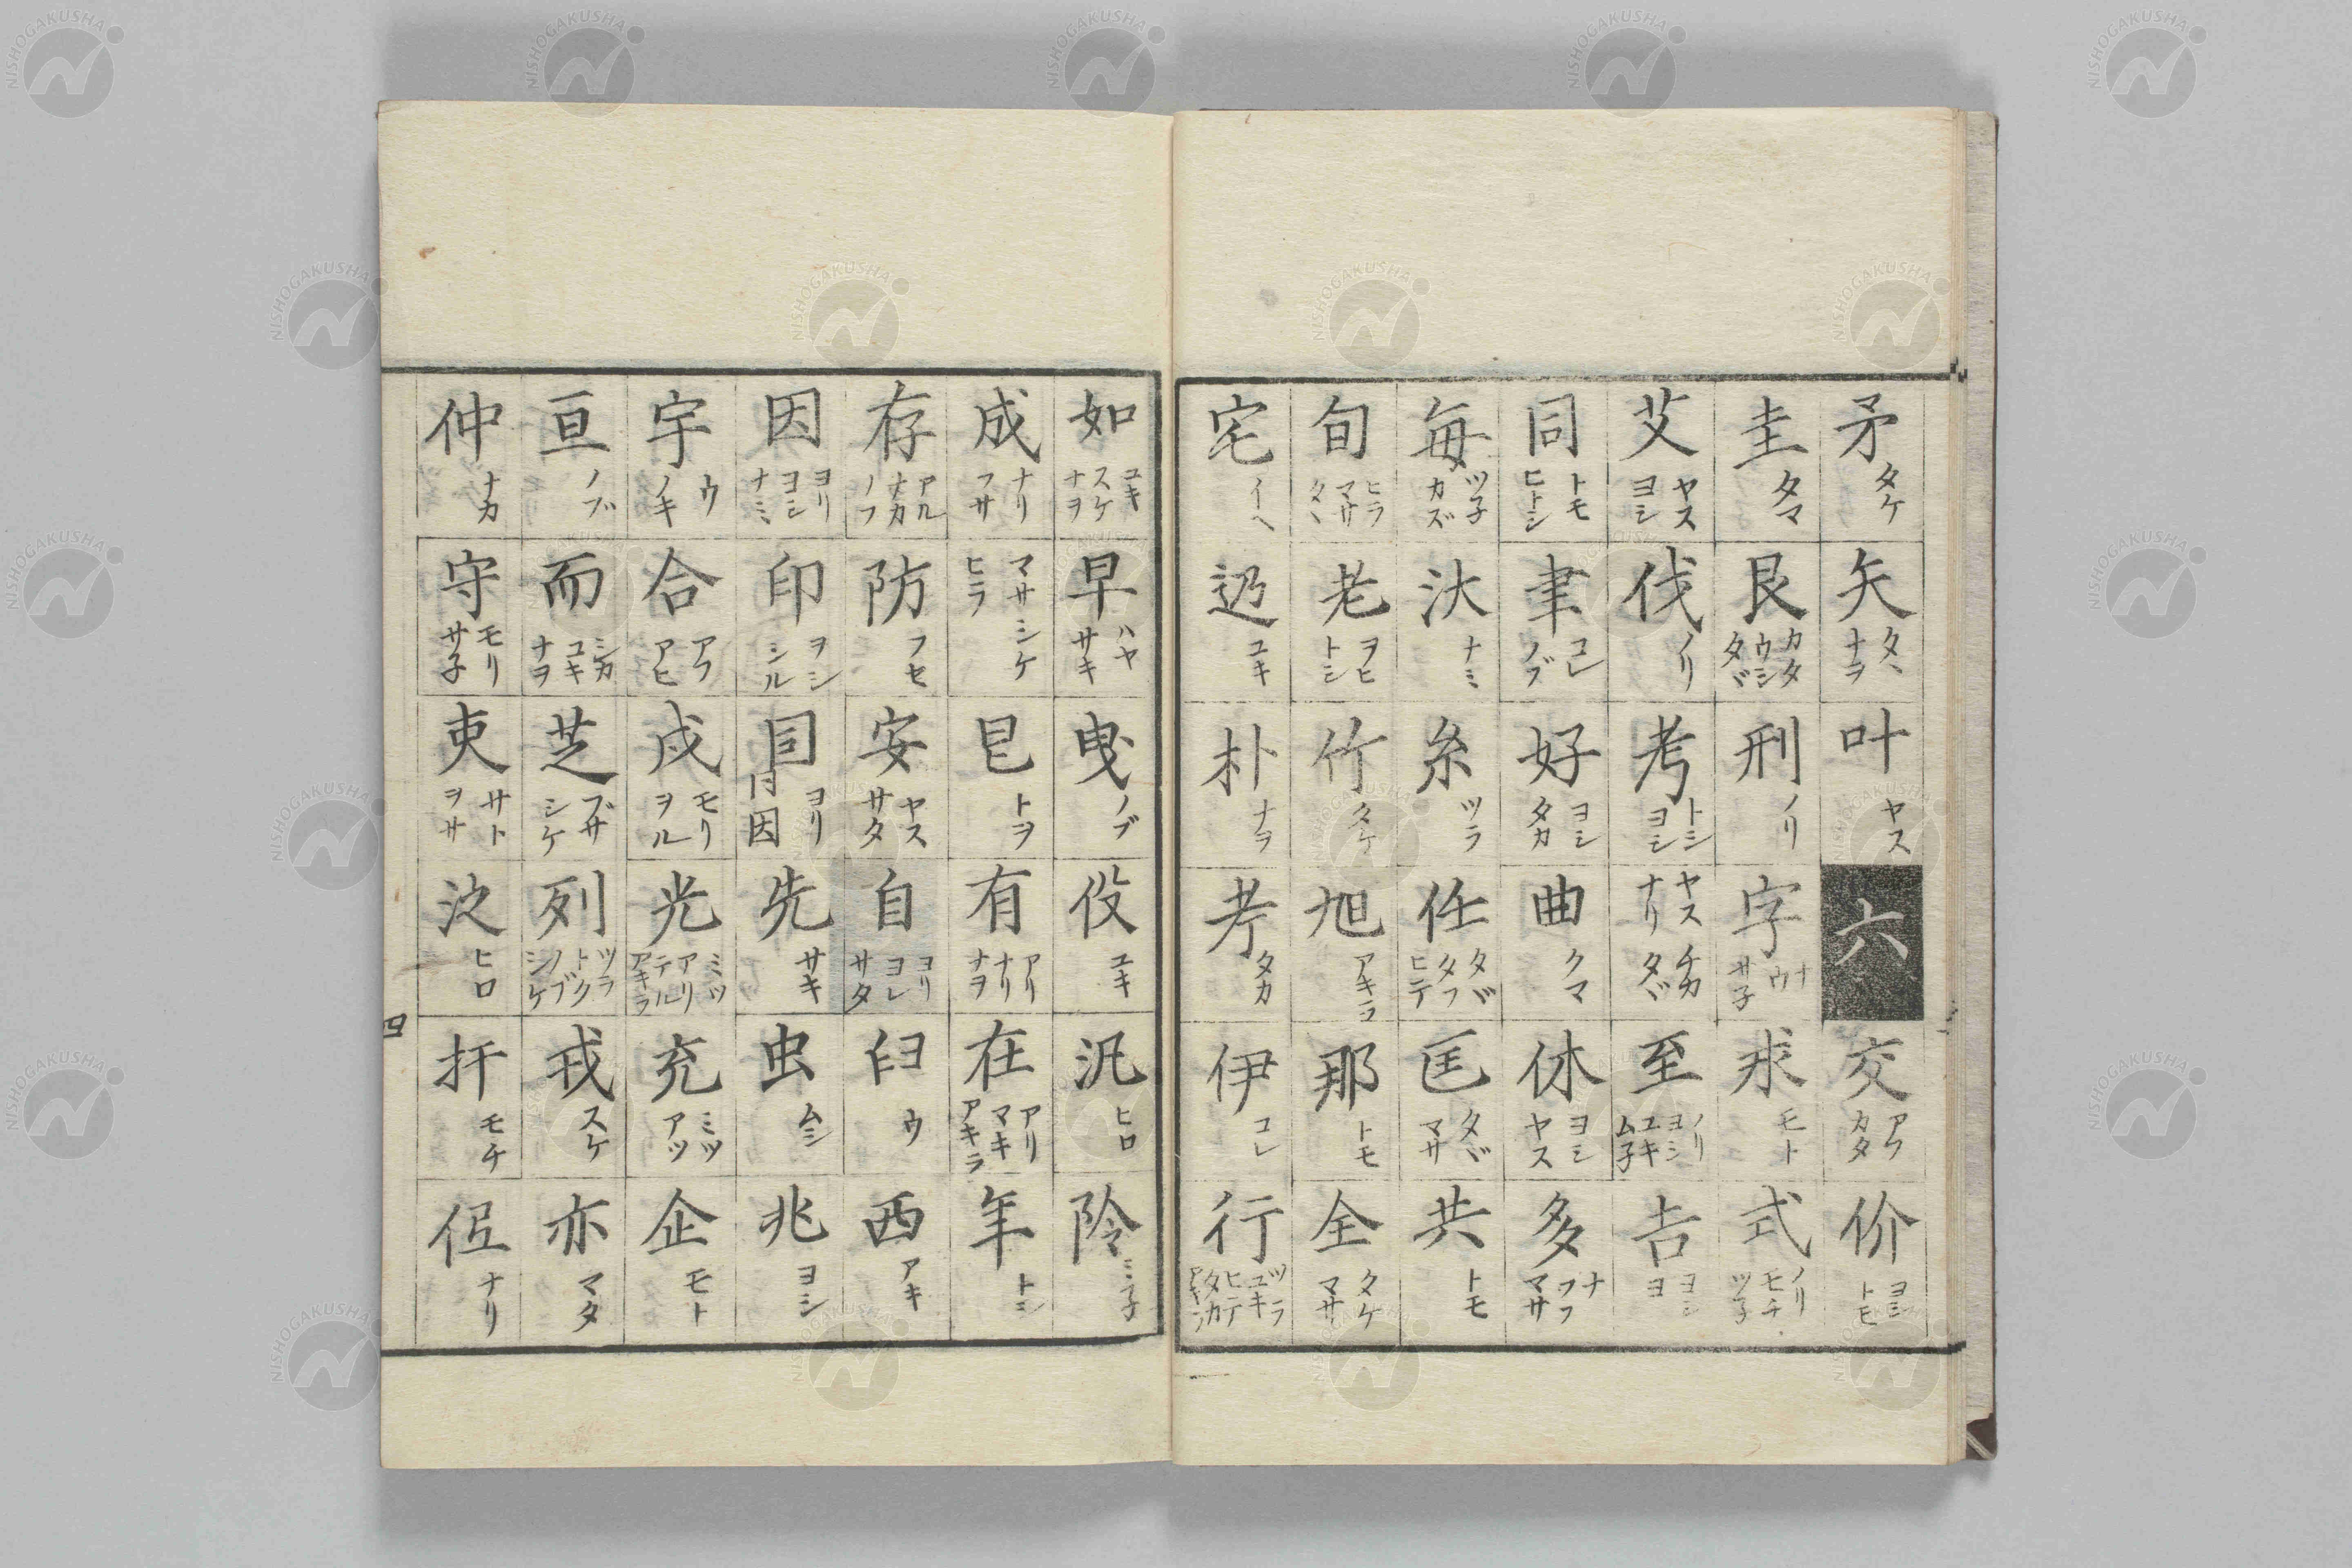 矛 タケ 矢 タヽ ナヲ 叶 ヤス 六 交 アフ カタ 价 ヨシ トモ
圭 タマ 艮 カタ ウシ タヾ 刑 ノリ 字 ナ ウ サ子 求 モト 式 ノリ モチ ツ子
艾 ヤス ヨシ 伐 ノリ 考 トシ ヨシ ヤス チカ ナリ タヾ 至 ノリ ヨシ ユキ ム子 吉 ヨシ ヨ
同 トモ ヒトシ 聿 コレ ノブ 好 ヨシ タカ 曲 クマ 休 ヨシ ヤス 多 ナ フフ マサ
毎 ツ子 カズ 汏 ナミ 糸 ツラ 任 タヾ タフ ヒデ 匡 タヾ マサ 共 トモ
旬 ヒラ マサ タヽ 老 ヲヒ トシ 竹 タケ 旭 アキラ 那 トモ 全 タケ マサ
宅 イヘ 辸 ユキ 朴 ナヲ 考 タカ 伊 コレ 行 ツラ ユキ ヒデ タカ アキラ
如 ユキ スケ ナヲ 早 ハヤ サキ 曳 ノブ 伇 ユキ 汎 ヒロ 阾 ミ子
成 ナリ フサ マサ シケ ヒラ 㠯 トヲ 有 アリ ナリ ナヲ 在 アリ マキ アキラ 年 トシ
存 アル ナカ ノフ 防 フセ 安 ヤス サタ 自 ヨリ ヨレ サタ 臼 ウ 西 アキ
因 ヨリ ヨシ ナミ 印 ヲシ シル 囙 同因 ヨリ 先 サキ 虫 ムシ 兆 ヨシ
宇 ウ ノキ 合 アフ アヒ 戍 モリ ヲル 光 ミツ アリ テル アキラ 充 ミツ アツ 企 モト
亘 ノブ 而 シカ ユキ ナヲ 芝 フサ シケ 列 ツラ トク ノブ シケ 戎 スケ 亦 マタ
仲 ナカ 守 モリ サ子 吏 サト ヲサ 泛 ヒロ 扞 モチ 伹 ナリ
四